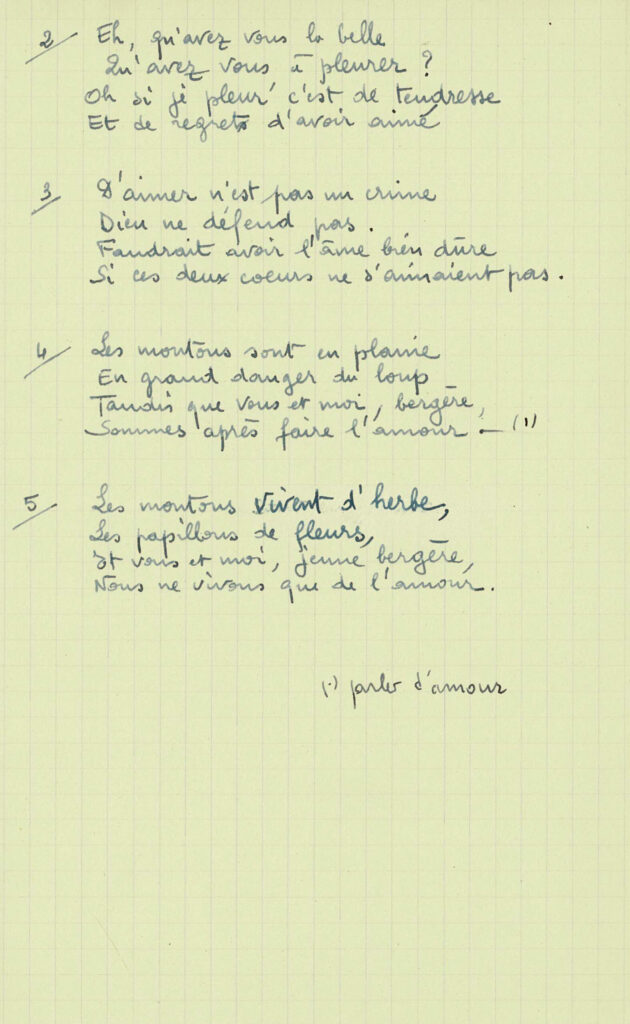 2/ Eh, qu'avez vous la belle
Qu'avez vous à pleurer ?
Oh si je pleur' c'est de tendresse
Et de regrets d'avoir aimé
3/ D'aimer n'est pas un crime
Dieu ne défend pas.
Faudrait avoir l'âme bien dûre
Si ces deux coeurs ne s'aimaient pas.
4/ Les moutons sont en plaine
En grand danger du loup
Tandis que vous et moi, bergère,
Sommes après faire l'amour — (1)
5/ Les moutons vivent d'herbe,
Les papillons de fleurs,
Et vous et moi, jeune bergère,
Nous ne vivons que de l'amour.
(1) parler d'amour